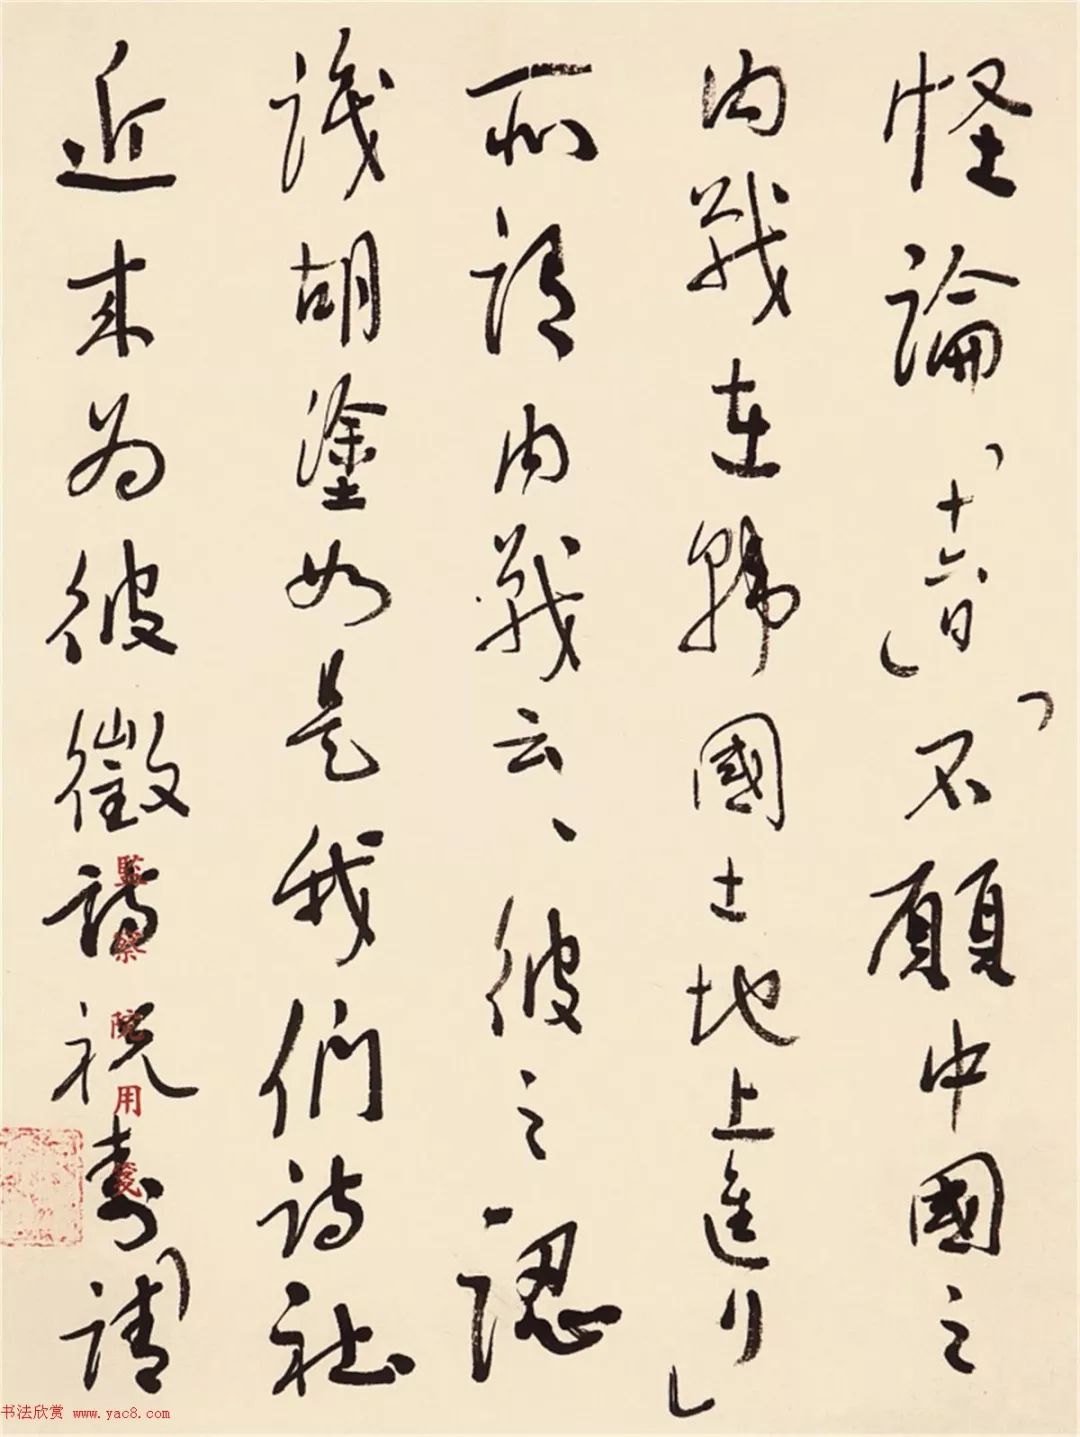 怪論「十六日」「不願中國之
内戰在韓國土地上進行」
所謂内戰云、彼之認
識胡塗如是我們詩社
近来为彼徵詩祝壽請
監察院用箋
书法欣赏 www.yac8.com